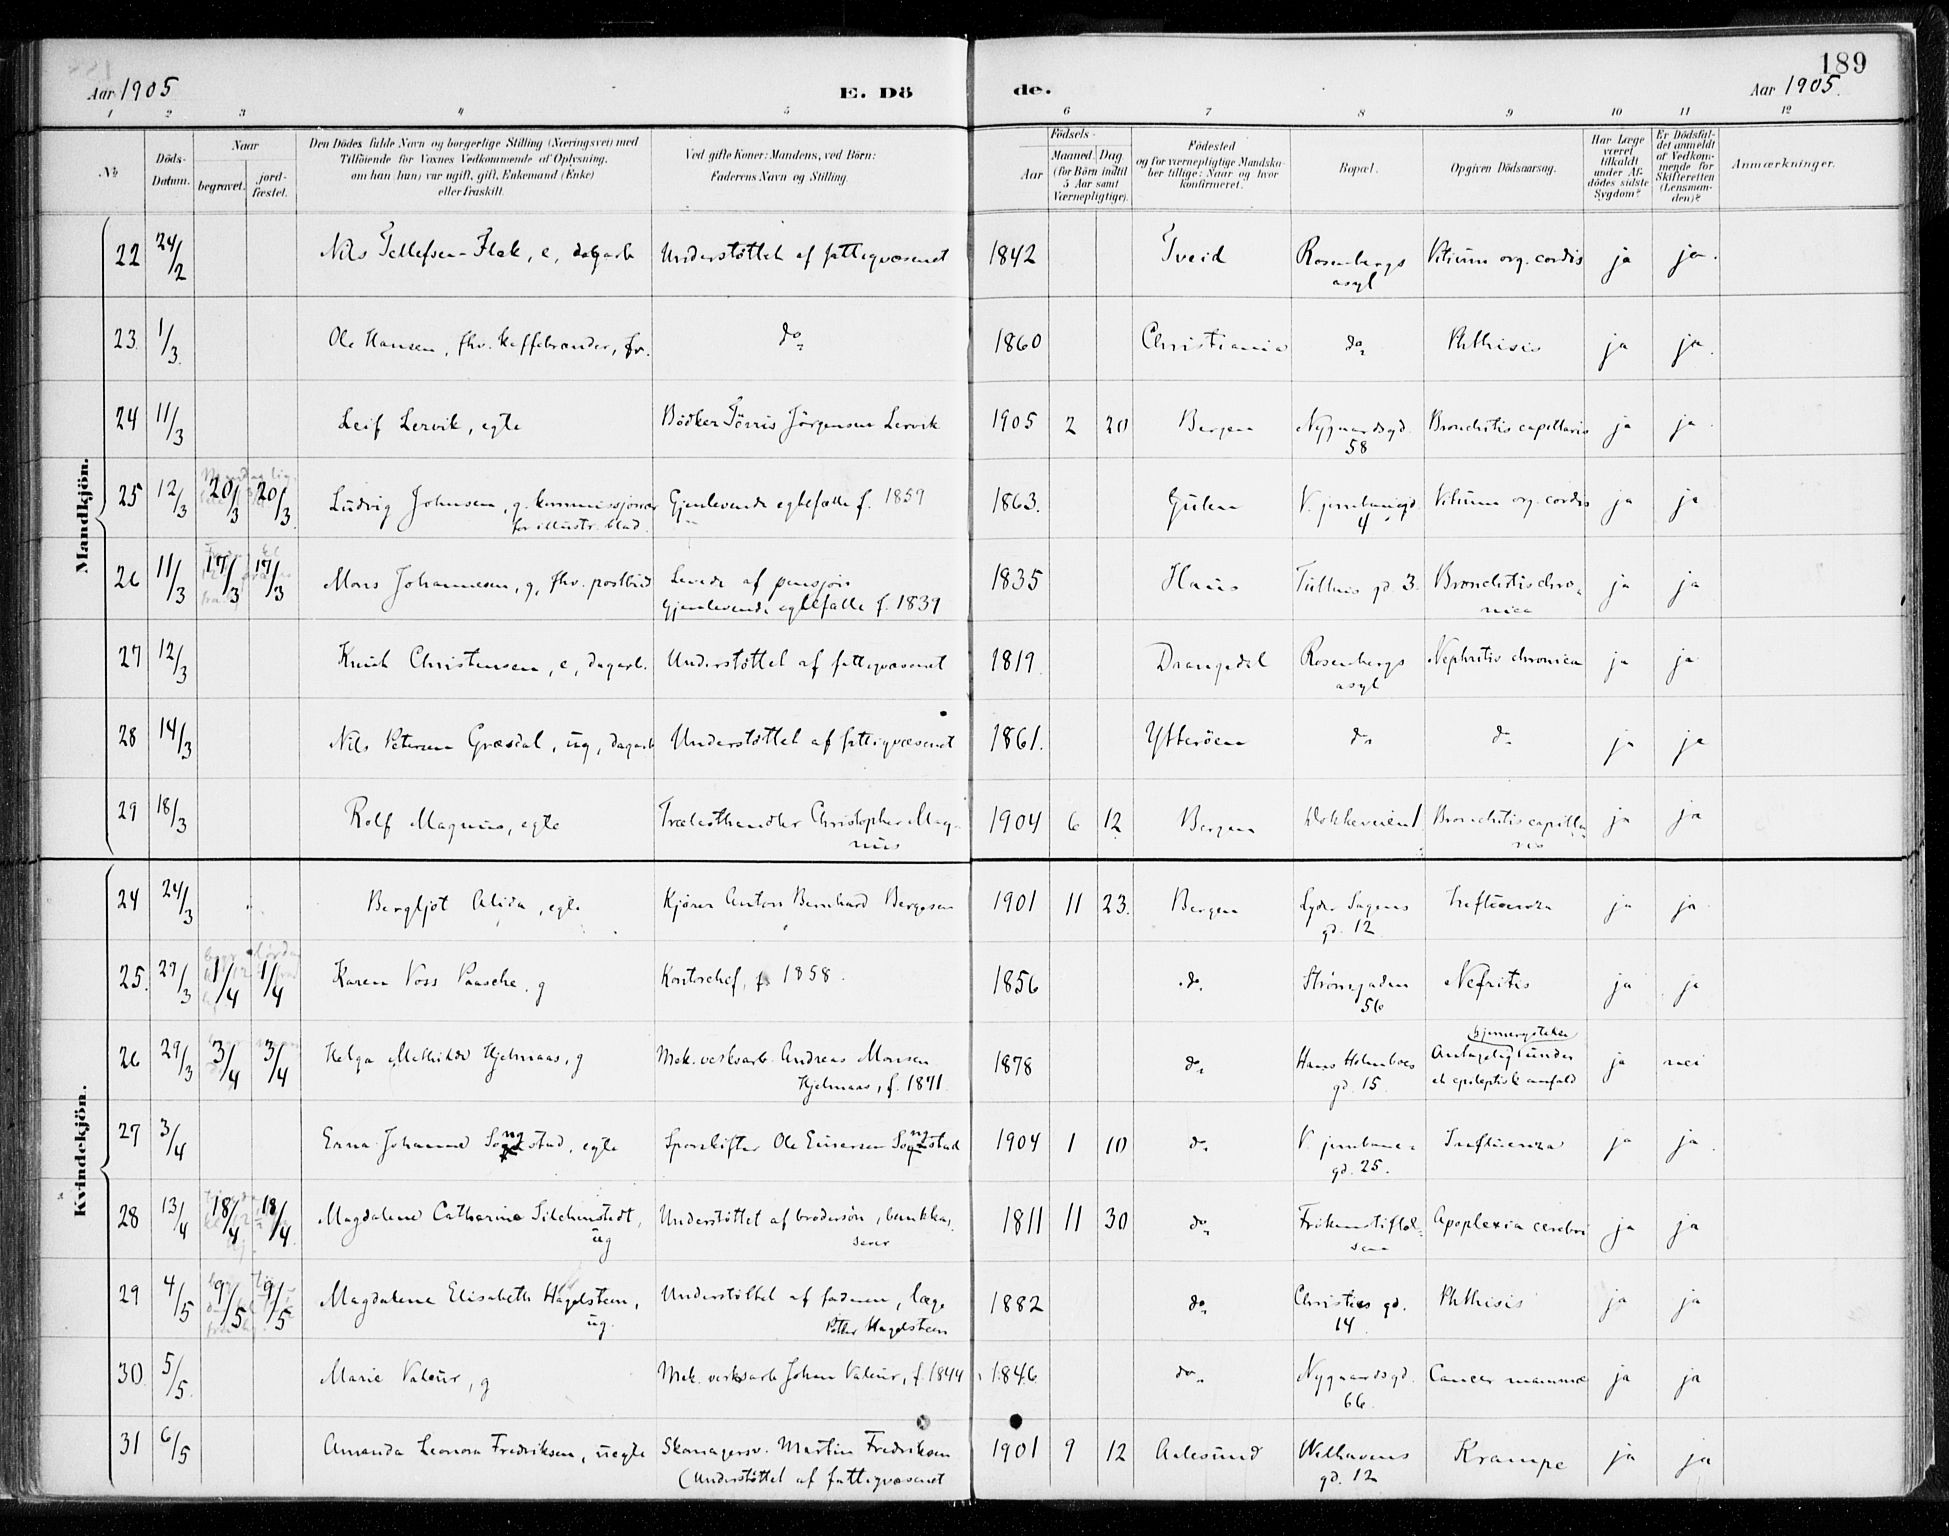 189
Aar 1905
E. Dö
de.
Aar 1905.
1 2 3 4 5 6 7 8 9 10 11 12
No
Döds-Datum.
Naar
begravet.
jord-fæstet.
Den Dödes fulde Navn og borgerlige Stilling (Næringsvei) med
Tilföiende for Voxnes Vedkommende af Oplysning.
om han (hun) var ugift, gift, Enkemand (Enke)
eller fraskilt.
Ved gifte Koner: Mandens, ved Börn:
Faderens Navn og Stilling.
Födsels-
Aar
Maaned. Dag
(for Börn indtil
5 Aar samt
Værnepligtige).
Födested
og for værnepligtige Mandska-
ber tillige: Naar og hvor
konfirmeret.
Bopæl.
Opgiven Dödsaarsag.
Har Læge
været
tilkaldt
under Af-
dödes sidste
Sygdom?
Er Dödsfal-
det anmeldt
af Vedkom-
mende for
Skifteretten
(Lensman-
den)?
Anmærkninger.
Mandkjön.
22 24/2 Nils Tellefsen Flak, e, dagarb Understöttet af fattigvæsenet 1842 Tveid Rosenbergs Vitium org. cordis ja ja.
asyl
23. 1/3. Ole Hansen, fhv. kaffebrænder, fr. do 1860 Christiania do Phthisis ja ja.
24 11/3 Leif Lervik, egte Bödker Törris Jörgensen Lervik 1905 2 20 Bergen Nygaardsgd. Bronchitis capillaris ja ja.
58
25 12/3 20/3 20/3. Ludvig Johnsen, g. kommissjonær Gjenlevende egtefælle f. 1859 1863. Gulen V. jernbanegd. Vitium org. cordis ja ja
for illustr. blad. 4
26 11/3 17/3 17/3 Mons Johannesen, g, fhv. postbud Levede af pensjon 1835 Haus Tullins gd. 3. Bronchitis chro- ja ja
Gjenlevende egtefælle f. 1839 nica
27 12/3 Knud Christensen, e, dagarb. Understöttet af fattigvæsenet 1819. Drangedal Rosenbergs Nephritis chronica ja ja
asyl
28 14/3 Nils Petersen Græsdal, ug, dagarb Understöttet af fattigvæsenet 1861. Ytteröen do do ja ja
29 18/3 Rolf Magnus, egte Trælasthandler Christopher Mag- 1904 6 12 Bergen Dokkeveien 1 Bronchitis capilla- ja ja
nus ris
Kvindekjön.
24 24/3 Bergljot Alida, egte Kjörer Anton Bernhard Bergesen 1901 11 23. Bergen Lyder Sagens Influenza ja ja
gd. 12
25. 27/3 1/4 1/4 Karen Voss Paasche, g Kontorchef, f. 1858. 1856 do. Strömgaden Nefritis ja ja
56
26 29/3 3/4 3/4 Helga Mathilde Hjelmaas, g Mek. verksarb. Andreas Monsen 1878 do Hans Holmboes Antagelig under ja nei
Hjelmaas, f. 1871. gd. 15. et epileptisk anfald
27 3/4 Erna Johanne Songstad, egte Sporskifter Ole Einersen Songstad 1904 1 10 do. V. jernbane- Influenza ja ja.
gd. 25.
28 13/4 18/4 18/4. Magdalene Catharine Silchenstedt, Understöttet af brodersön, bankkas- 1811 11 30 do Frökenstiftel- Apoplexia cerebri ja ja
ug serer sen
29 4/5 9/5 9/5 Magdalena Elisabeth Hagelsteen, Understöttet af faderen, læge 1882 do Christies gd. Phthisis ja ja
ug. Petter Hagelsteen 14.
30. 5/5. Marie Valeur, g Mek. verksarb Johan Valeur, f. 1844 1846 do. Nygaardsgd. Cancer mammæ ja ja
66.
31 6/5 Amanda Leonora Fredriksen, uegte Skomagersv. Martin Fredriksen 1901 9 12 Aalesund Welhavens Krampe ja ja
(Understöttet af fattigvæsenet gd. 12